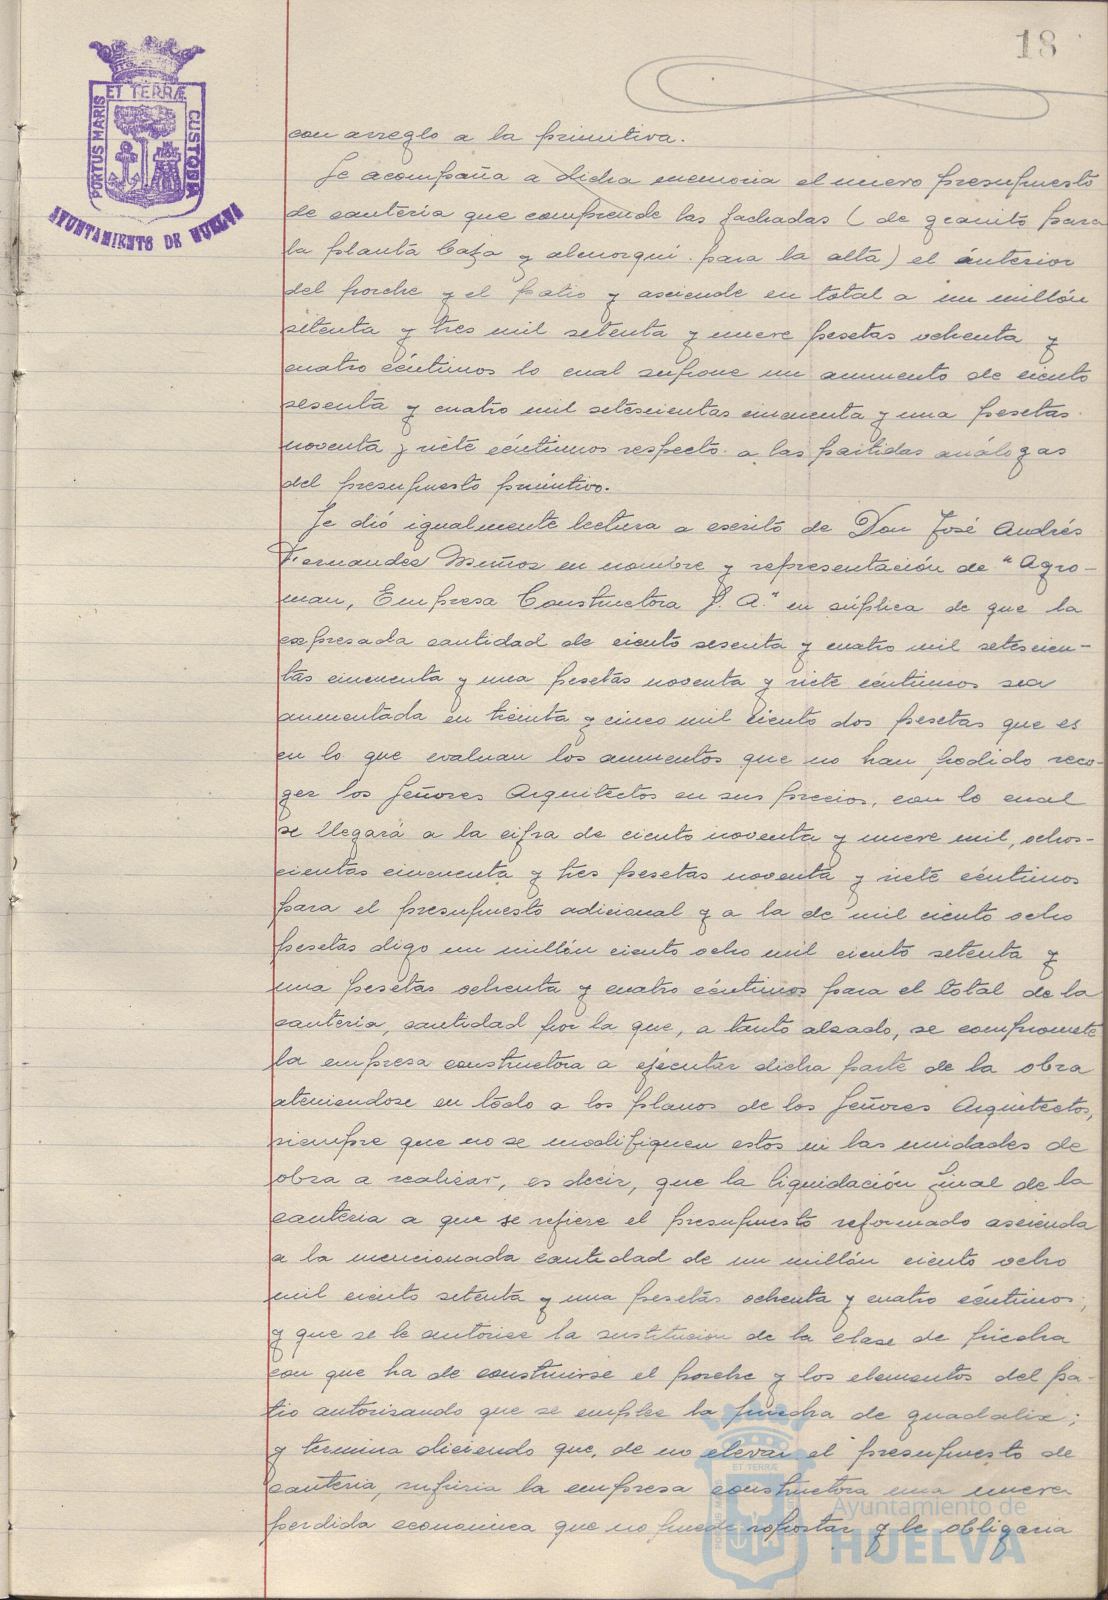 18
PORTUS MARIS ET TERRÆ CUSTODIA
AYUNTAMIENTO DE HUELVA
con arreglo a la primitiva.
Se acompaña a dicha memoria el nuevo presupuesto
de cantería que comprende las fachadas (de granito para
la planta baja y almorquí para la alta) el interior
del porche y el patio y asciende en total a un millón
setenta y tres mil setenta y nueve pesetas ochenta y
cuatro céntimos lo cual supone un aumento de ciento
sesenta y cuatro mil setescientas cincuenta y una pesetas
noventa y siete céntimos respecto a las partidas análogas
del presupuesto primitivo.
Se dió igualmente lectura a escrito de Don José Andrés
Fernandez Muñoz en nombre y representación de "Agro-
man, Empresa Constructora S. A." en súplica de que la
expresada cantidad de ciento sesenta y cuatro mil setescien-
tas cincuenta y una pesetas noventa y siete céntimos sea
aumentada en treinta y cinco mil ciento dos pesetas que es
en lo que evaluan los aumentos que no han podido reco-
ger los Señores Arquitectos en sus precios, con lo cual
se llegará a la cifra de ciento noventa y nueve mil, ochos-
cientas cincuenta y tres pesetas noventa y siete céntimos
para el presupuesto adicional y a la de mil ciento ocho
pesetas digo un millón ciento ocho mil ciento setenta y
una pesetas ochenta y cuatro céntimos para el total de la
cantería, cantidad por la que, a tanto alzado, se compromete
la empresa constructora a ejecutar dicha parte de la obra
ateniendose en todo a los planos de los Señores Arquitectos,
siempre que no se modifiquen estos ni las unidades de
obra a realizar, es decir, que la liquidación final de la
canteria a que se refiere el presupuesto reformado ascienda
a la mencionada cantidad de un millón ciento ocho
mil ciento setenta y una pesetas ochenta y cuatro céntimos;
y que se le autorice la sustitución de la clase de piedra
con que ha de construirse el porche y los elementos del pa-
tio autorizando que se emplee la piedra de guadalix;
y termina diciendo que, de no elevar el presupuesto de
canteria, sufriria la empresa constructora una nueva
perdida economica que no puede soportar y le obligaria
ET TERRÆ
PORTUS MARIS
Ayuntamiento de
HUELVA